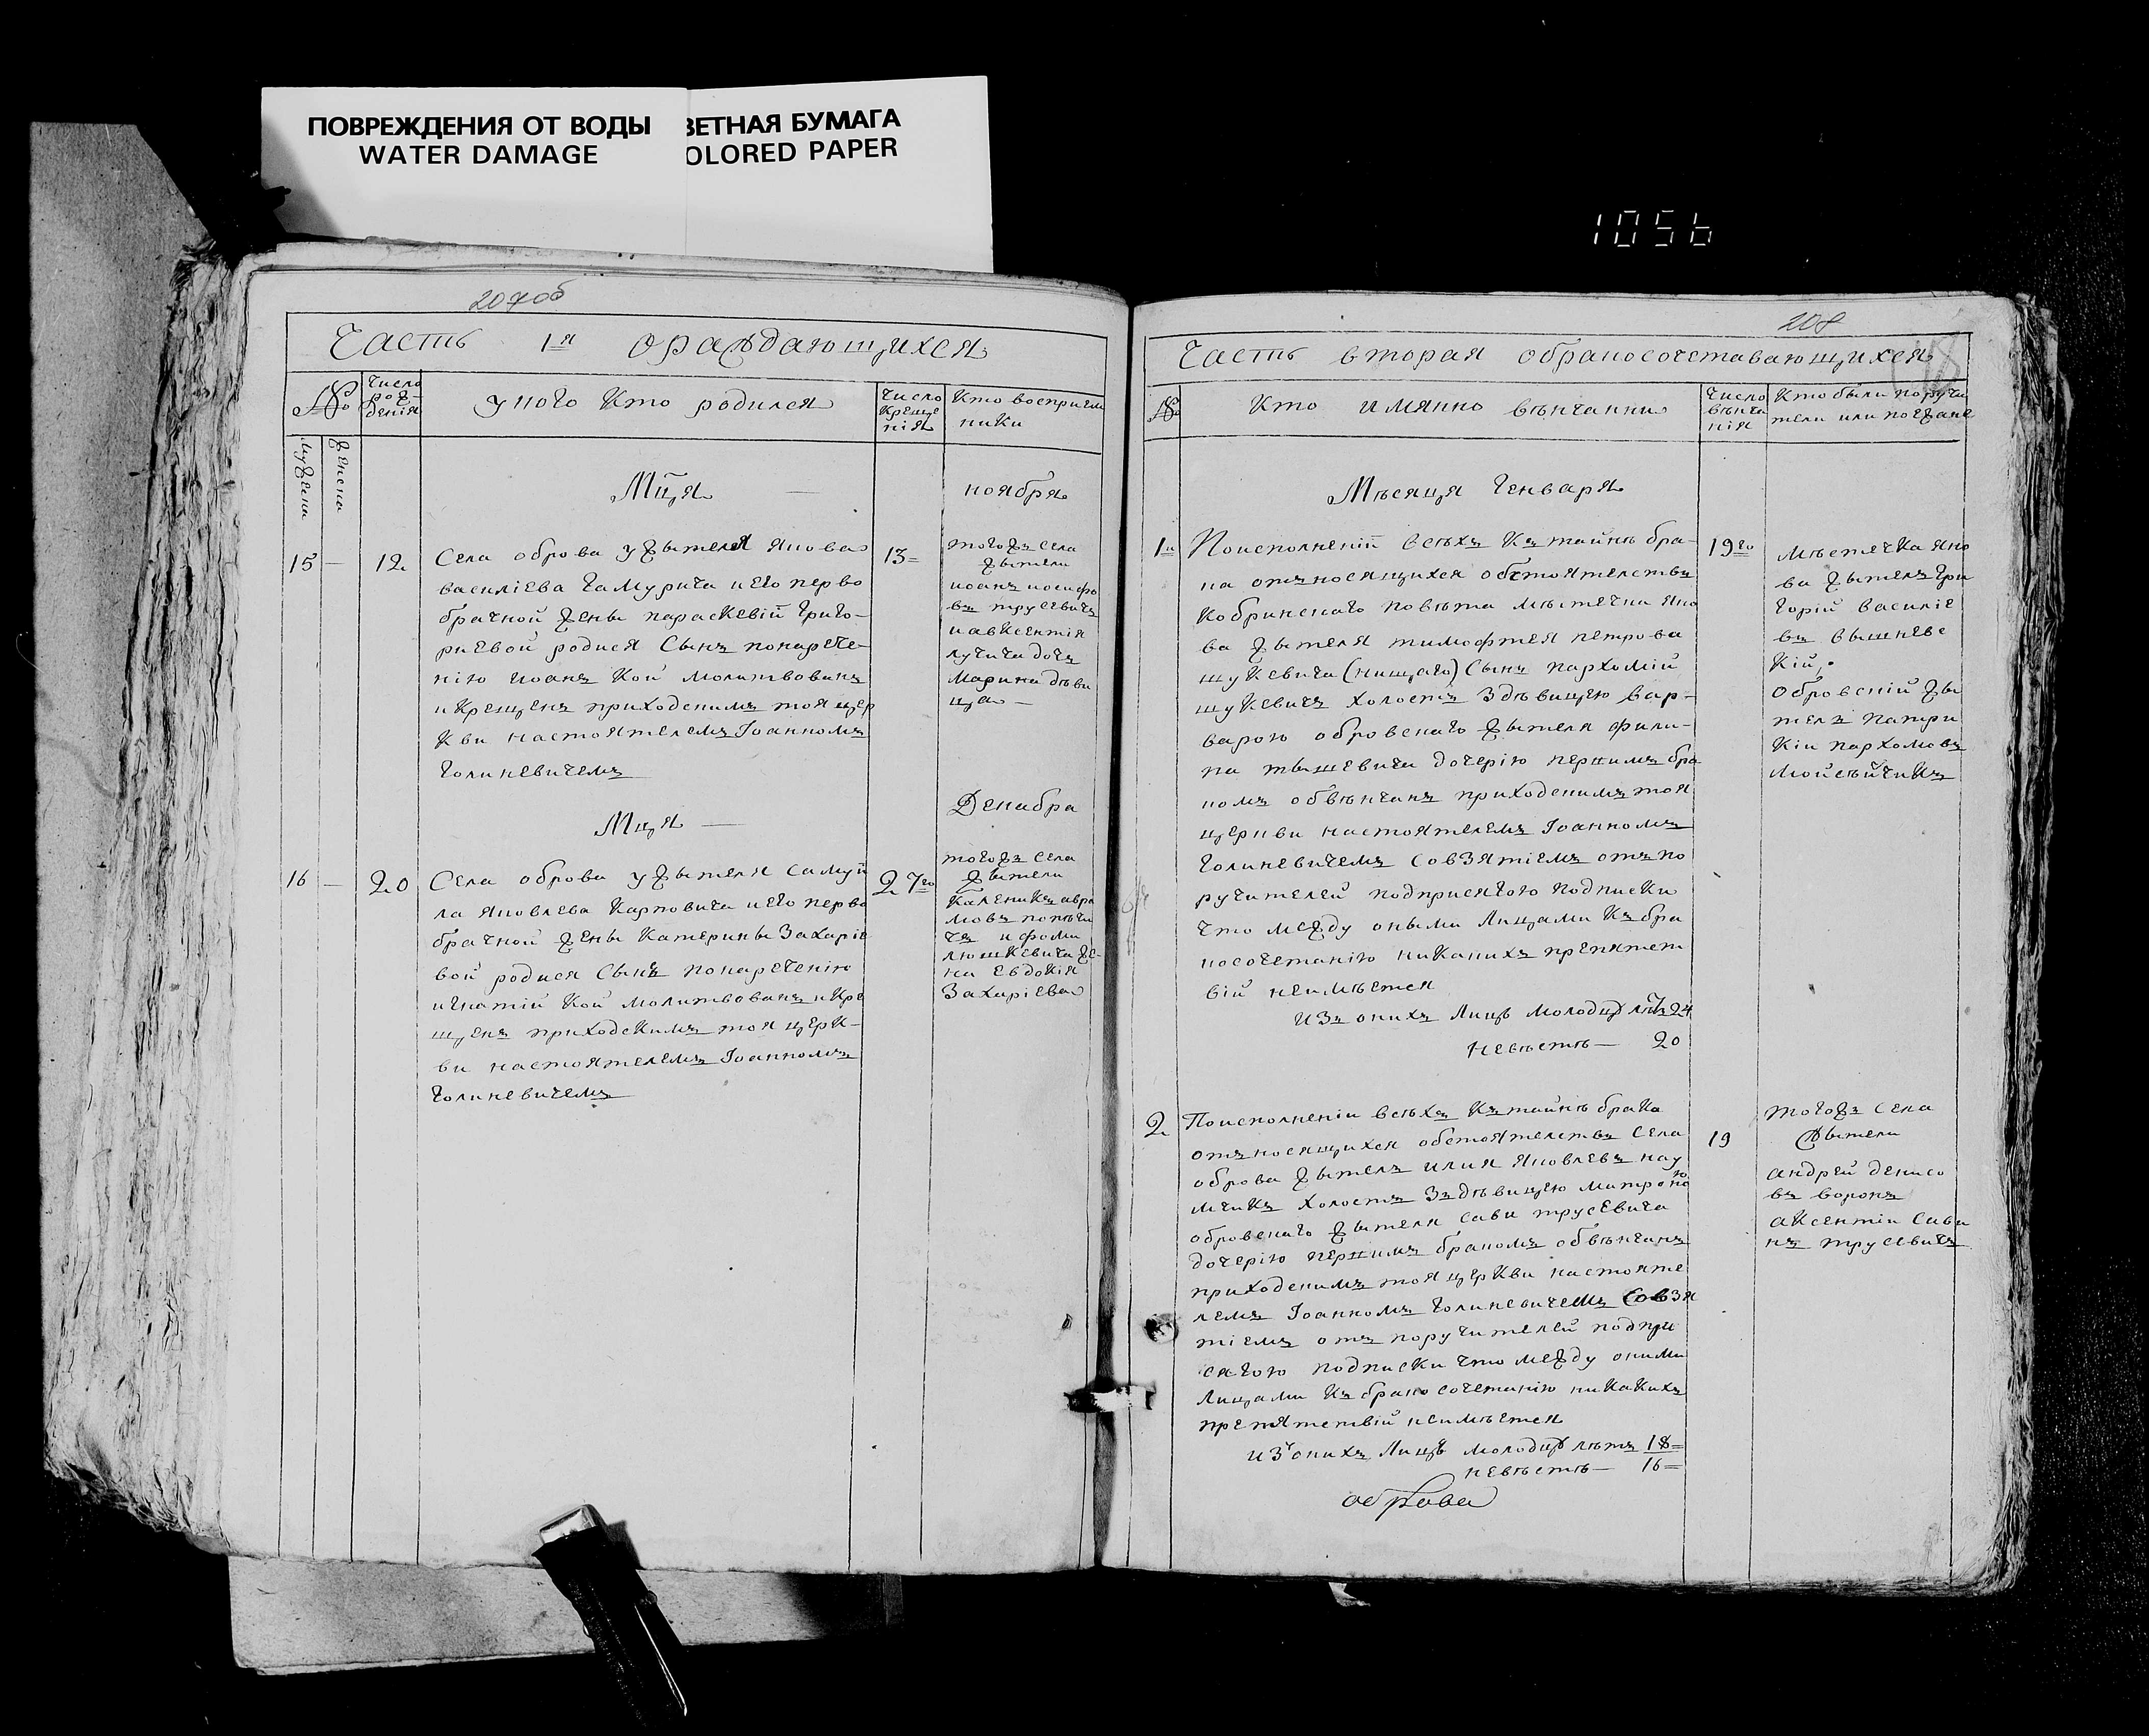 ПОВРЕЖДЕНИЯ ОТ ВОДЫ
WATER DAMAGE
ВЕТНАЯ БУМАГА
OLORED PAPER
1056
207об
Часть 1я ораждающихся
№
число
рож-
денія
у ного кто родился
число
креще
нія
Кто восприем
ники
мужеска
женска
Мця —
ноября
15 — 12
Села оброва у жытеля Якова
василіева Гамурича и его перво
брачной жены параскевій григо-
риевой родися Сынъ понарече-
нію иоанъ кой молитвованъ
и Крещенъ приходскимъ тоя цер
Кви настоятелемъ Іоанномъ
Голиневичемъ
13=
тогожъ села
жытели
иоанъ иосифо
въ трусевичъ
и авксентія
лучича дочъ
Марина дѣви
ца —
Мця —
Декабра
16 — 20
Села оброва у жытеля самуй
ла Яковлева Карповича и его перво
брачной жены Катерины Захаріе
вой родися Сынъ понареченію
игнатій Кой молитвованъ и Кре
щенъ приходскимъ тоя церк-
ви настоятелемъ Іоанномъ
Голиневичемъ
27го
тогожъ села
жытели
Каленикъ авра
мовъ
чъ и фоми
люшкевича же-
на Евдокія
Захаріева
208
Часть вторая обракосочетавающихся
№
Кто имянно вѣнчанни
число
вѣнча
нія
Кто были поручи
тели или поезжане
Мѣсяца Генваря
1й
Поисполненій всѣхъ Къ тайнѣ бра-
ка отъносящихся обстоятелствъ
Кобринскаго повѣта мѣстечки Яно
ва жытеля тимофтея петрова
шукевича (нищаго) Сынъ пархомій
шукевичъ холостъ Здѣвицею вар-
варою обровскаго жытеля фили-
па тышевича дочерію первимъ бра
комъ обвѣнчанъ приходскимъ тоя
церкви настоятелемъ Іоанномъ
Голиневичемъ Совзятіемъ отъ по
ручителей подприсягою подписки
что между оными Лицами Къ бра
косочетанію никакихъ препятст
вій неимѣется
изъ онихъ Лицъ молодцу лѣтъ 24
Невѣстѣ — 20
19го
мѣстечка яно
ва жытель гри
горій василіе
въ вышневс
кій.
обровскій жы
тель патри
кій пархомовъ
мойсѣйчикъ
2
Поисполненіи всѣхъ Къ тайнѣ брака
отъносящихся обстоятелствъ села
оброва жытель илия Яковлевъ нау
мчикъ холостъ Зъ дѣвицею матроно
ю
обровскаго жытеля сави трусевича
дочерію первимъ бракомъ обвѣнчанъ
приходскимъ тоя церкви настояте
лемъ Іоанномъ Голиневичемъ Совзя
тіемъ отъ поручителей подпри
сягою подписки что между оними
Лицами Къ бракосочетанію никакихъ
препятствій неимѣется
изъ онихъ Лицъ молодцу лѣтъ 18=
невѣстѣ — 16=
19
тогожъ села
Жытели
андрей денисо
въ воронъ
аксентіи сави
нъ трусевичъ
оброва